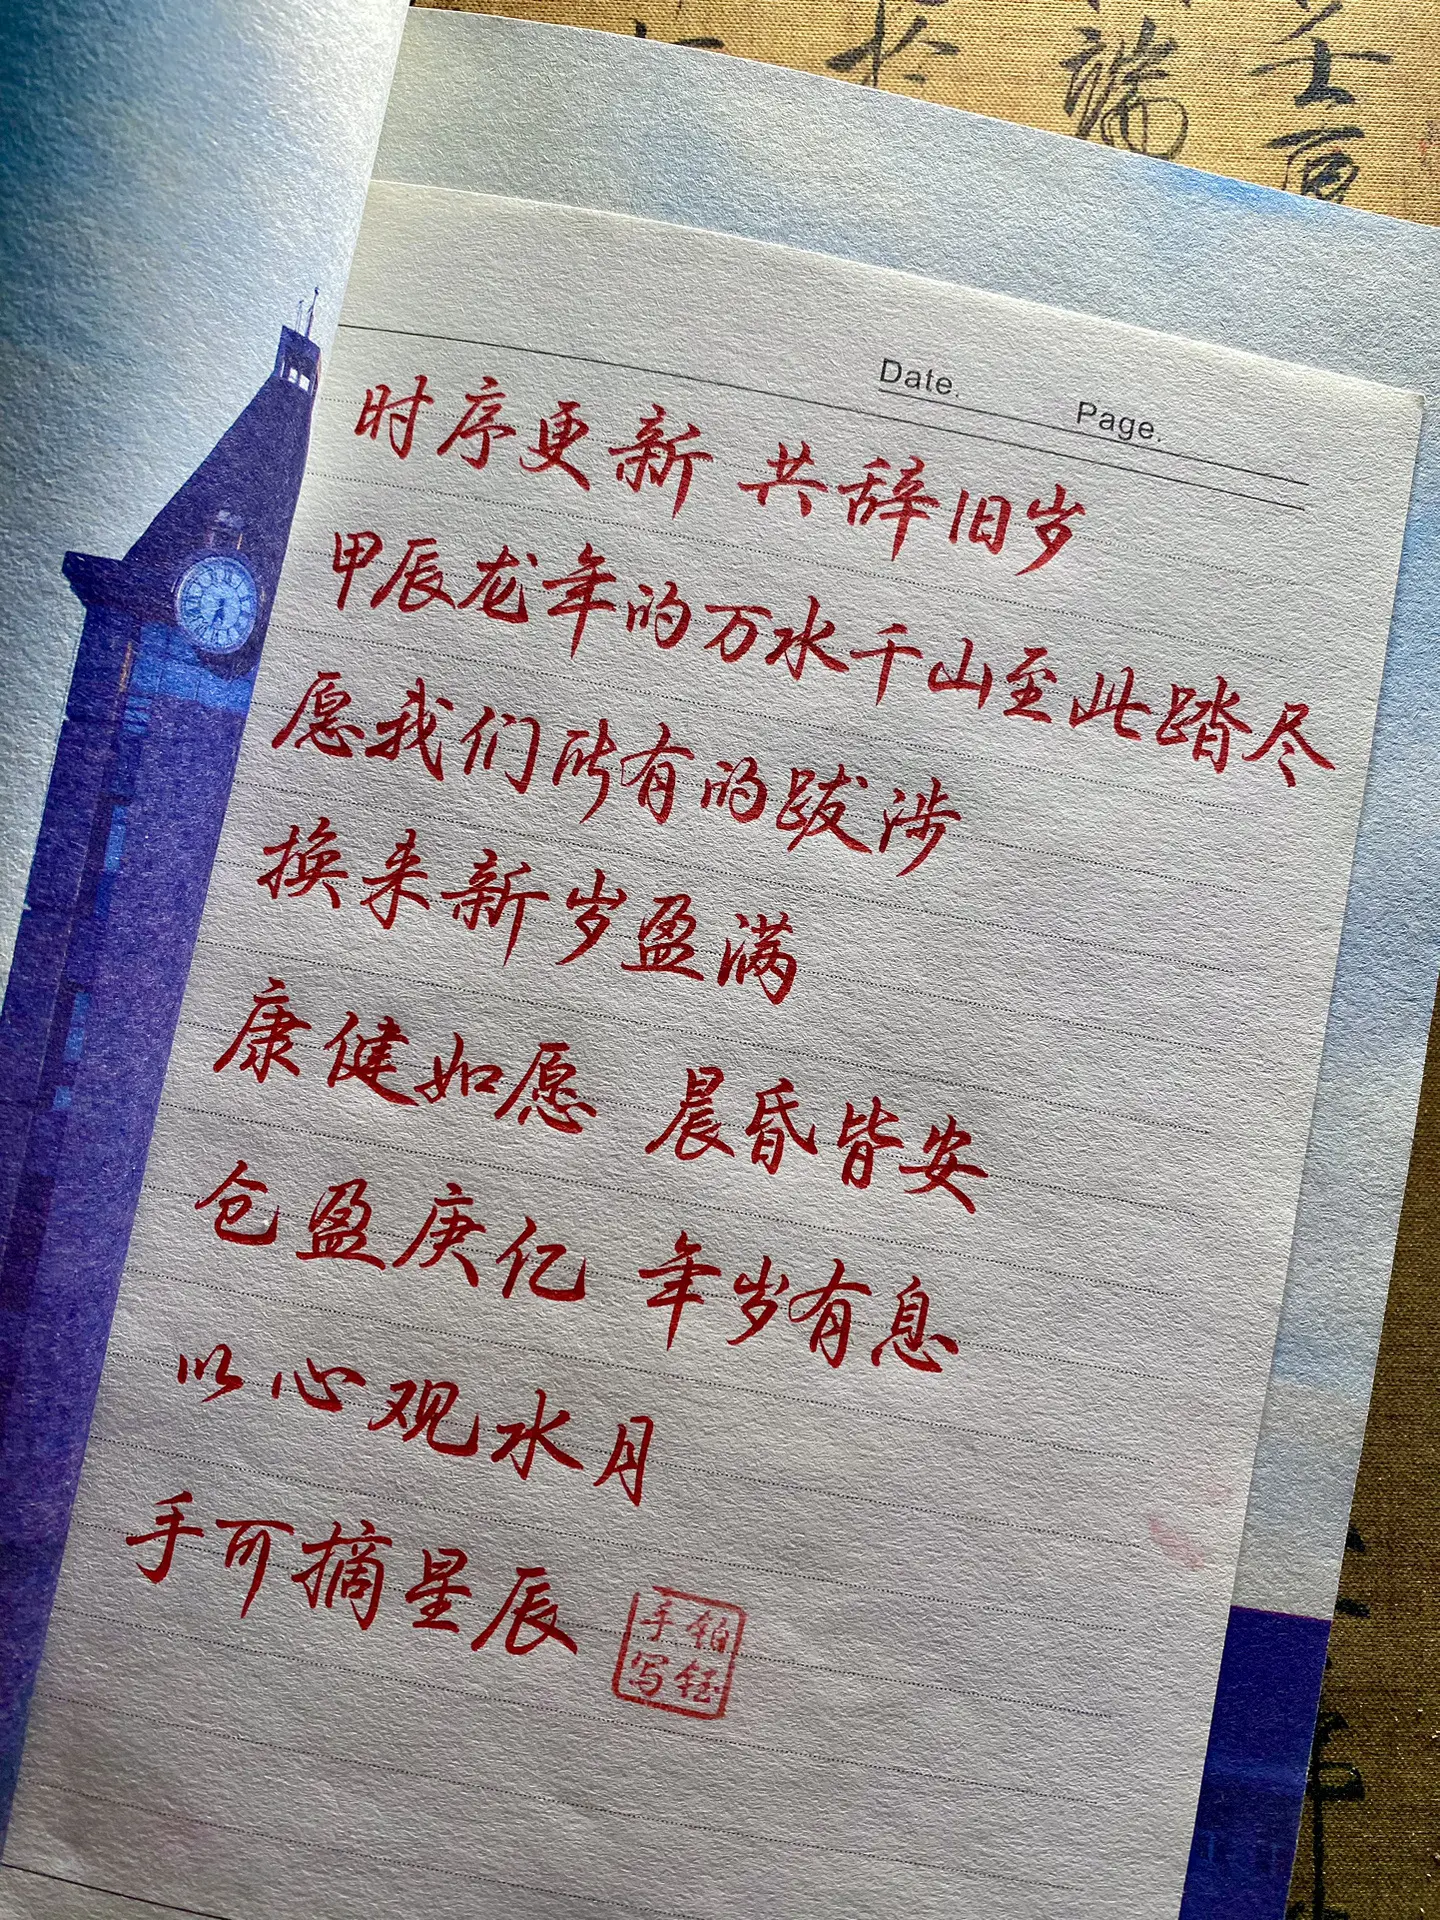 Date.
Page.
时序更新 共辞旧岁
甲辰龙年的万水千山至此踏尽
愿我们所有的跋涉
换来新岁盈满
康健如愿 晨昏皆安
仓盈庚亿 年岁有息
以心观水月
手可摘星辰
铂钰
手写
於
端